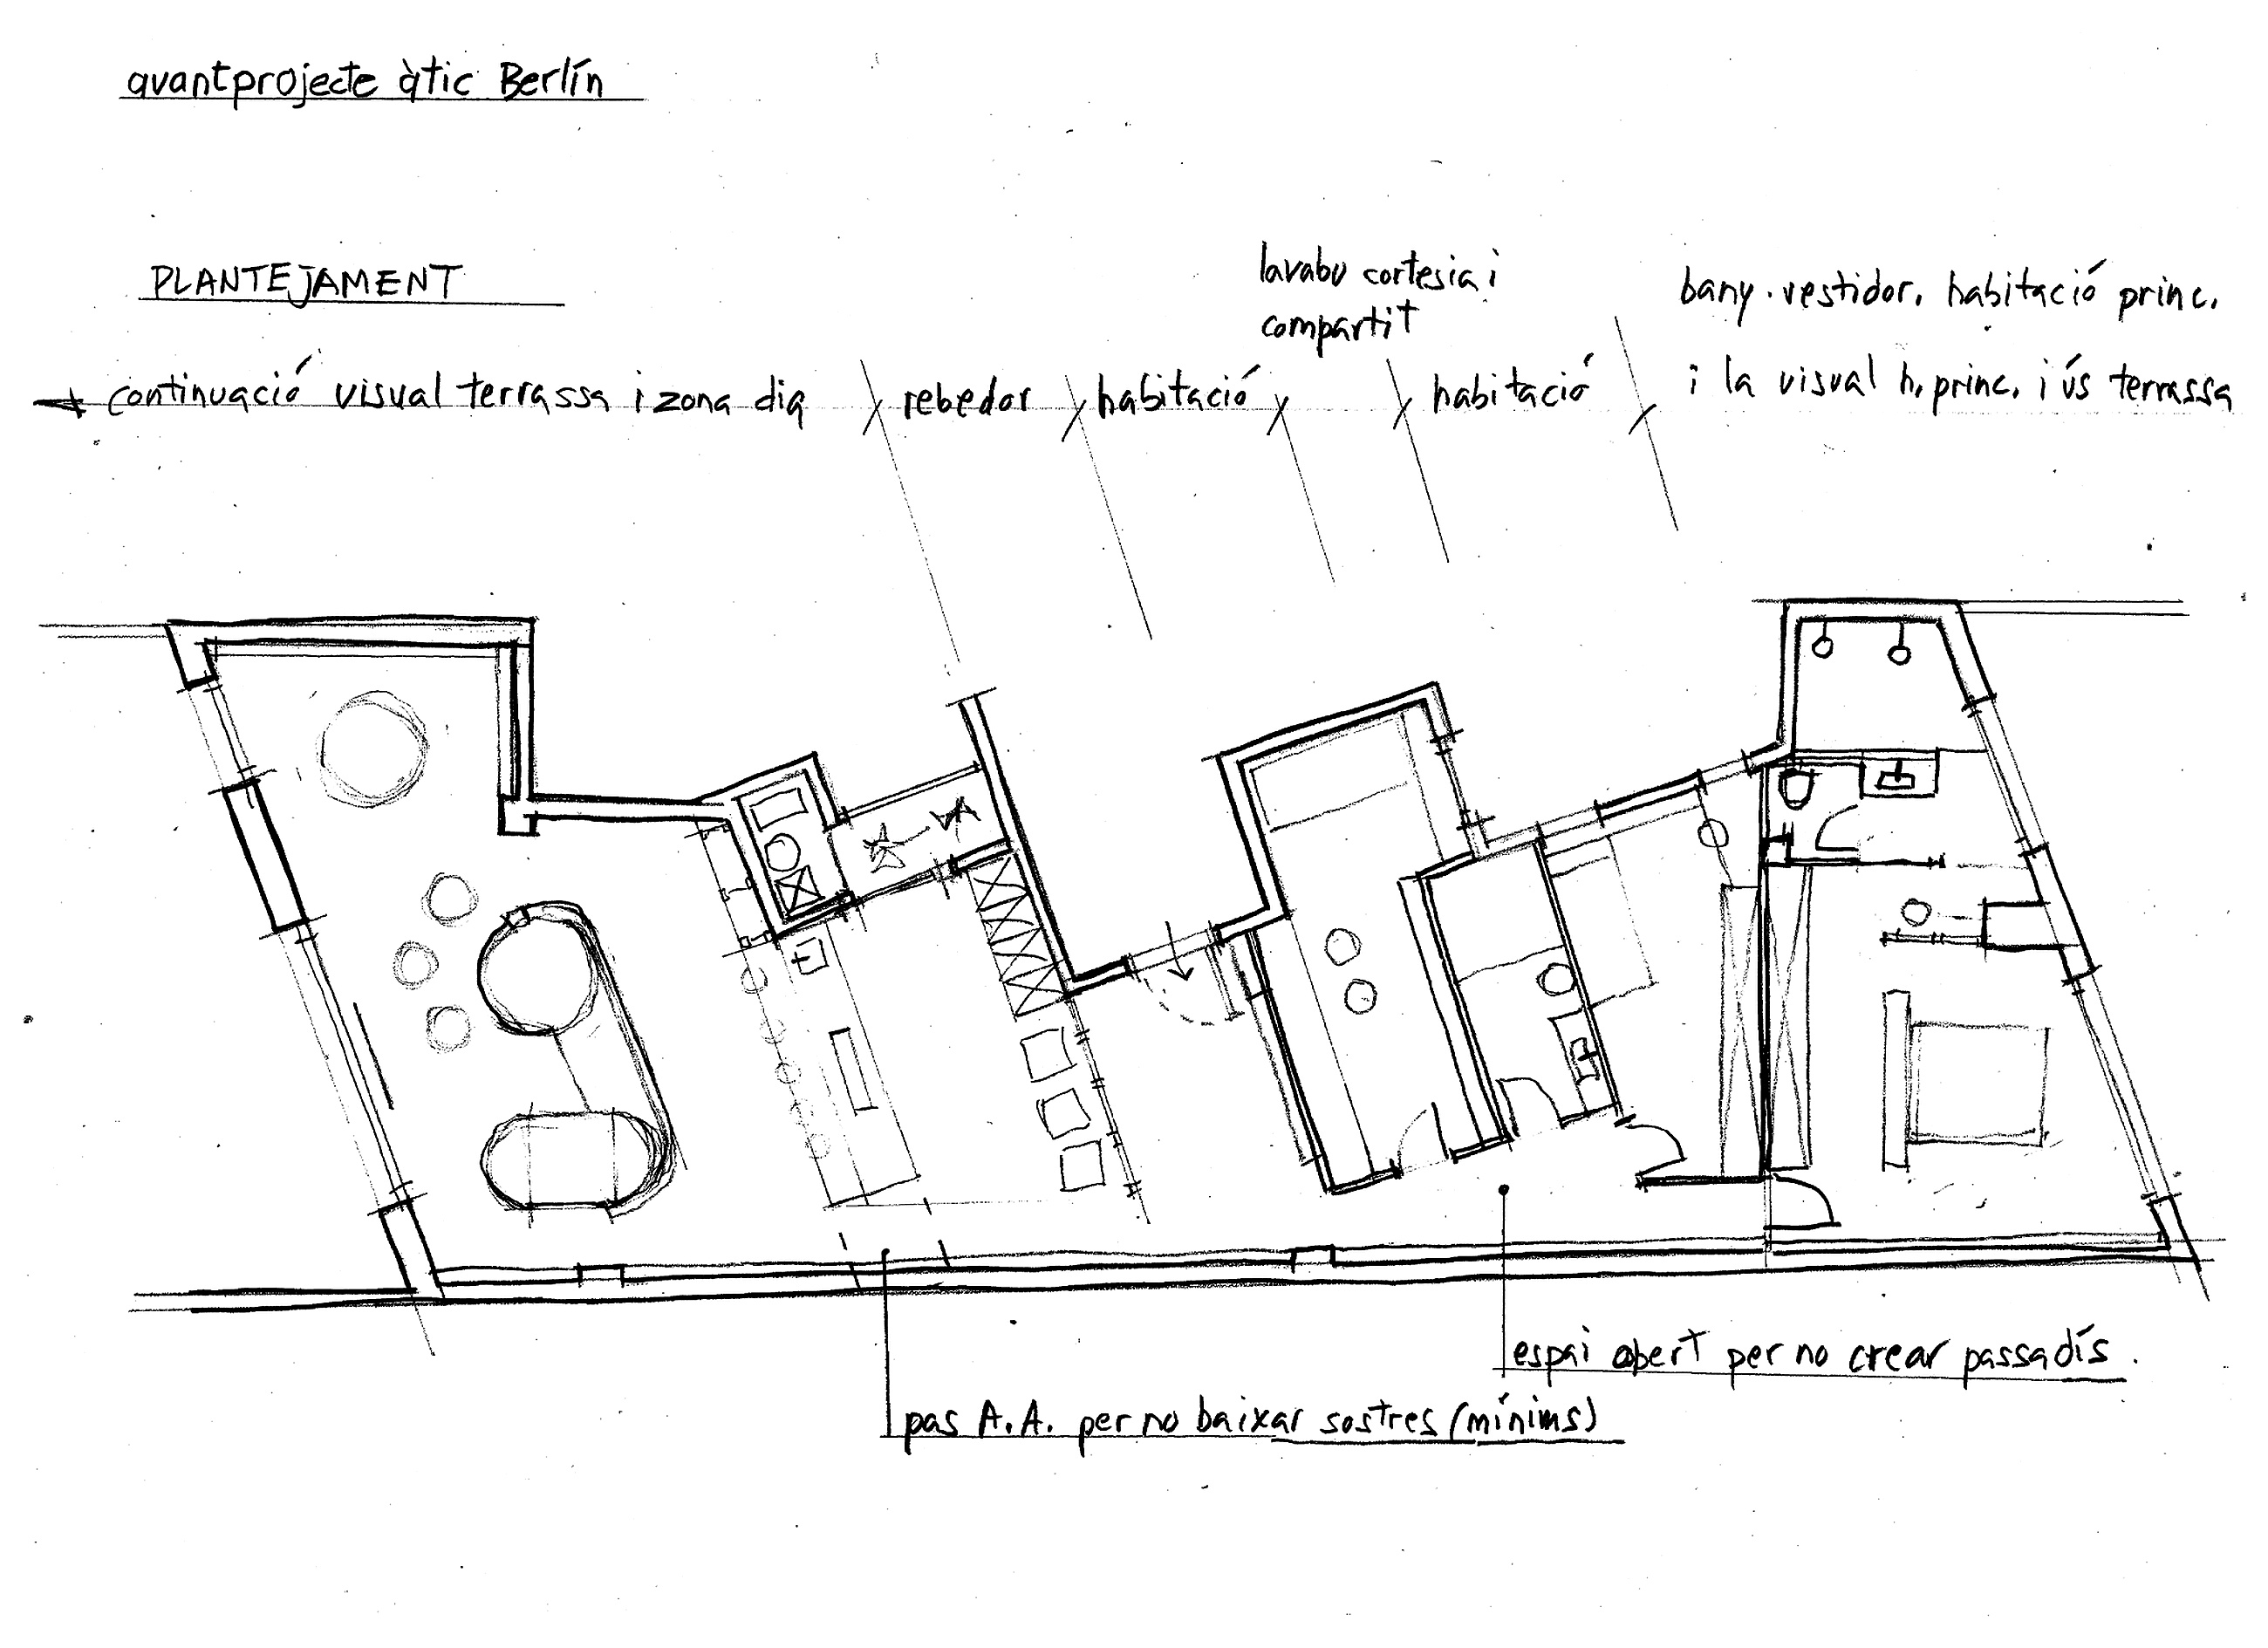 avantprojecte àtic Berlín
PLANTEJAMENT
lavabo cortesia i
compartit
bany. vestidor. habitació princ.
continuació visual terrassa i zona dia
rebedor
habitació
habitació
i la visual h. princ. i ús terrassa
espai obert per no crear passadís.
pas A.A. per no baixar sostres (mínims)